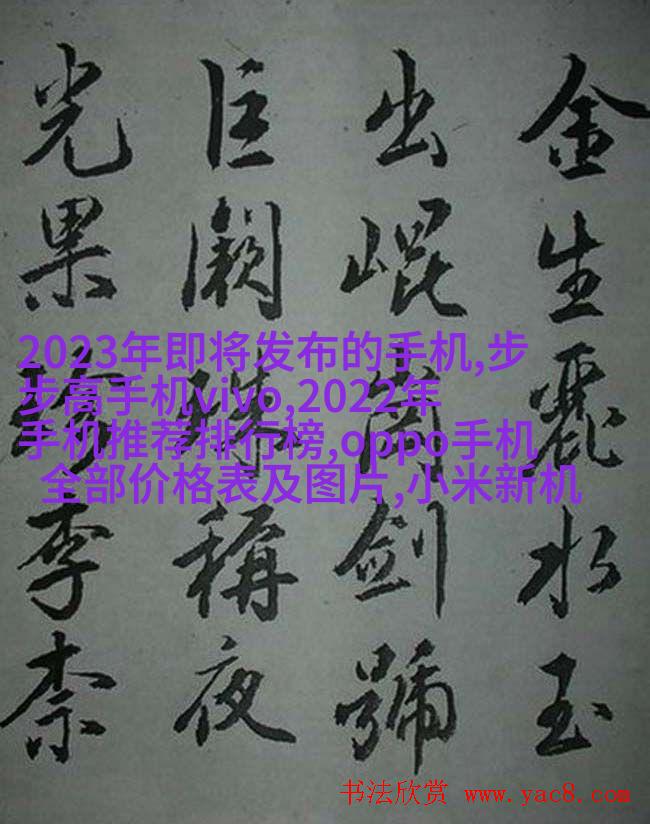 金生麗水玉
出崐岡劍號
巨闕珠稱夜
光果珍李柰
2023年即将发布的手机,步
步高手机vivo,2022年
手机推荐排行榜,oppo手机
全部价格表及图片,小米新机
书法欣赏 www.yac8.com